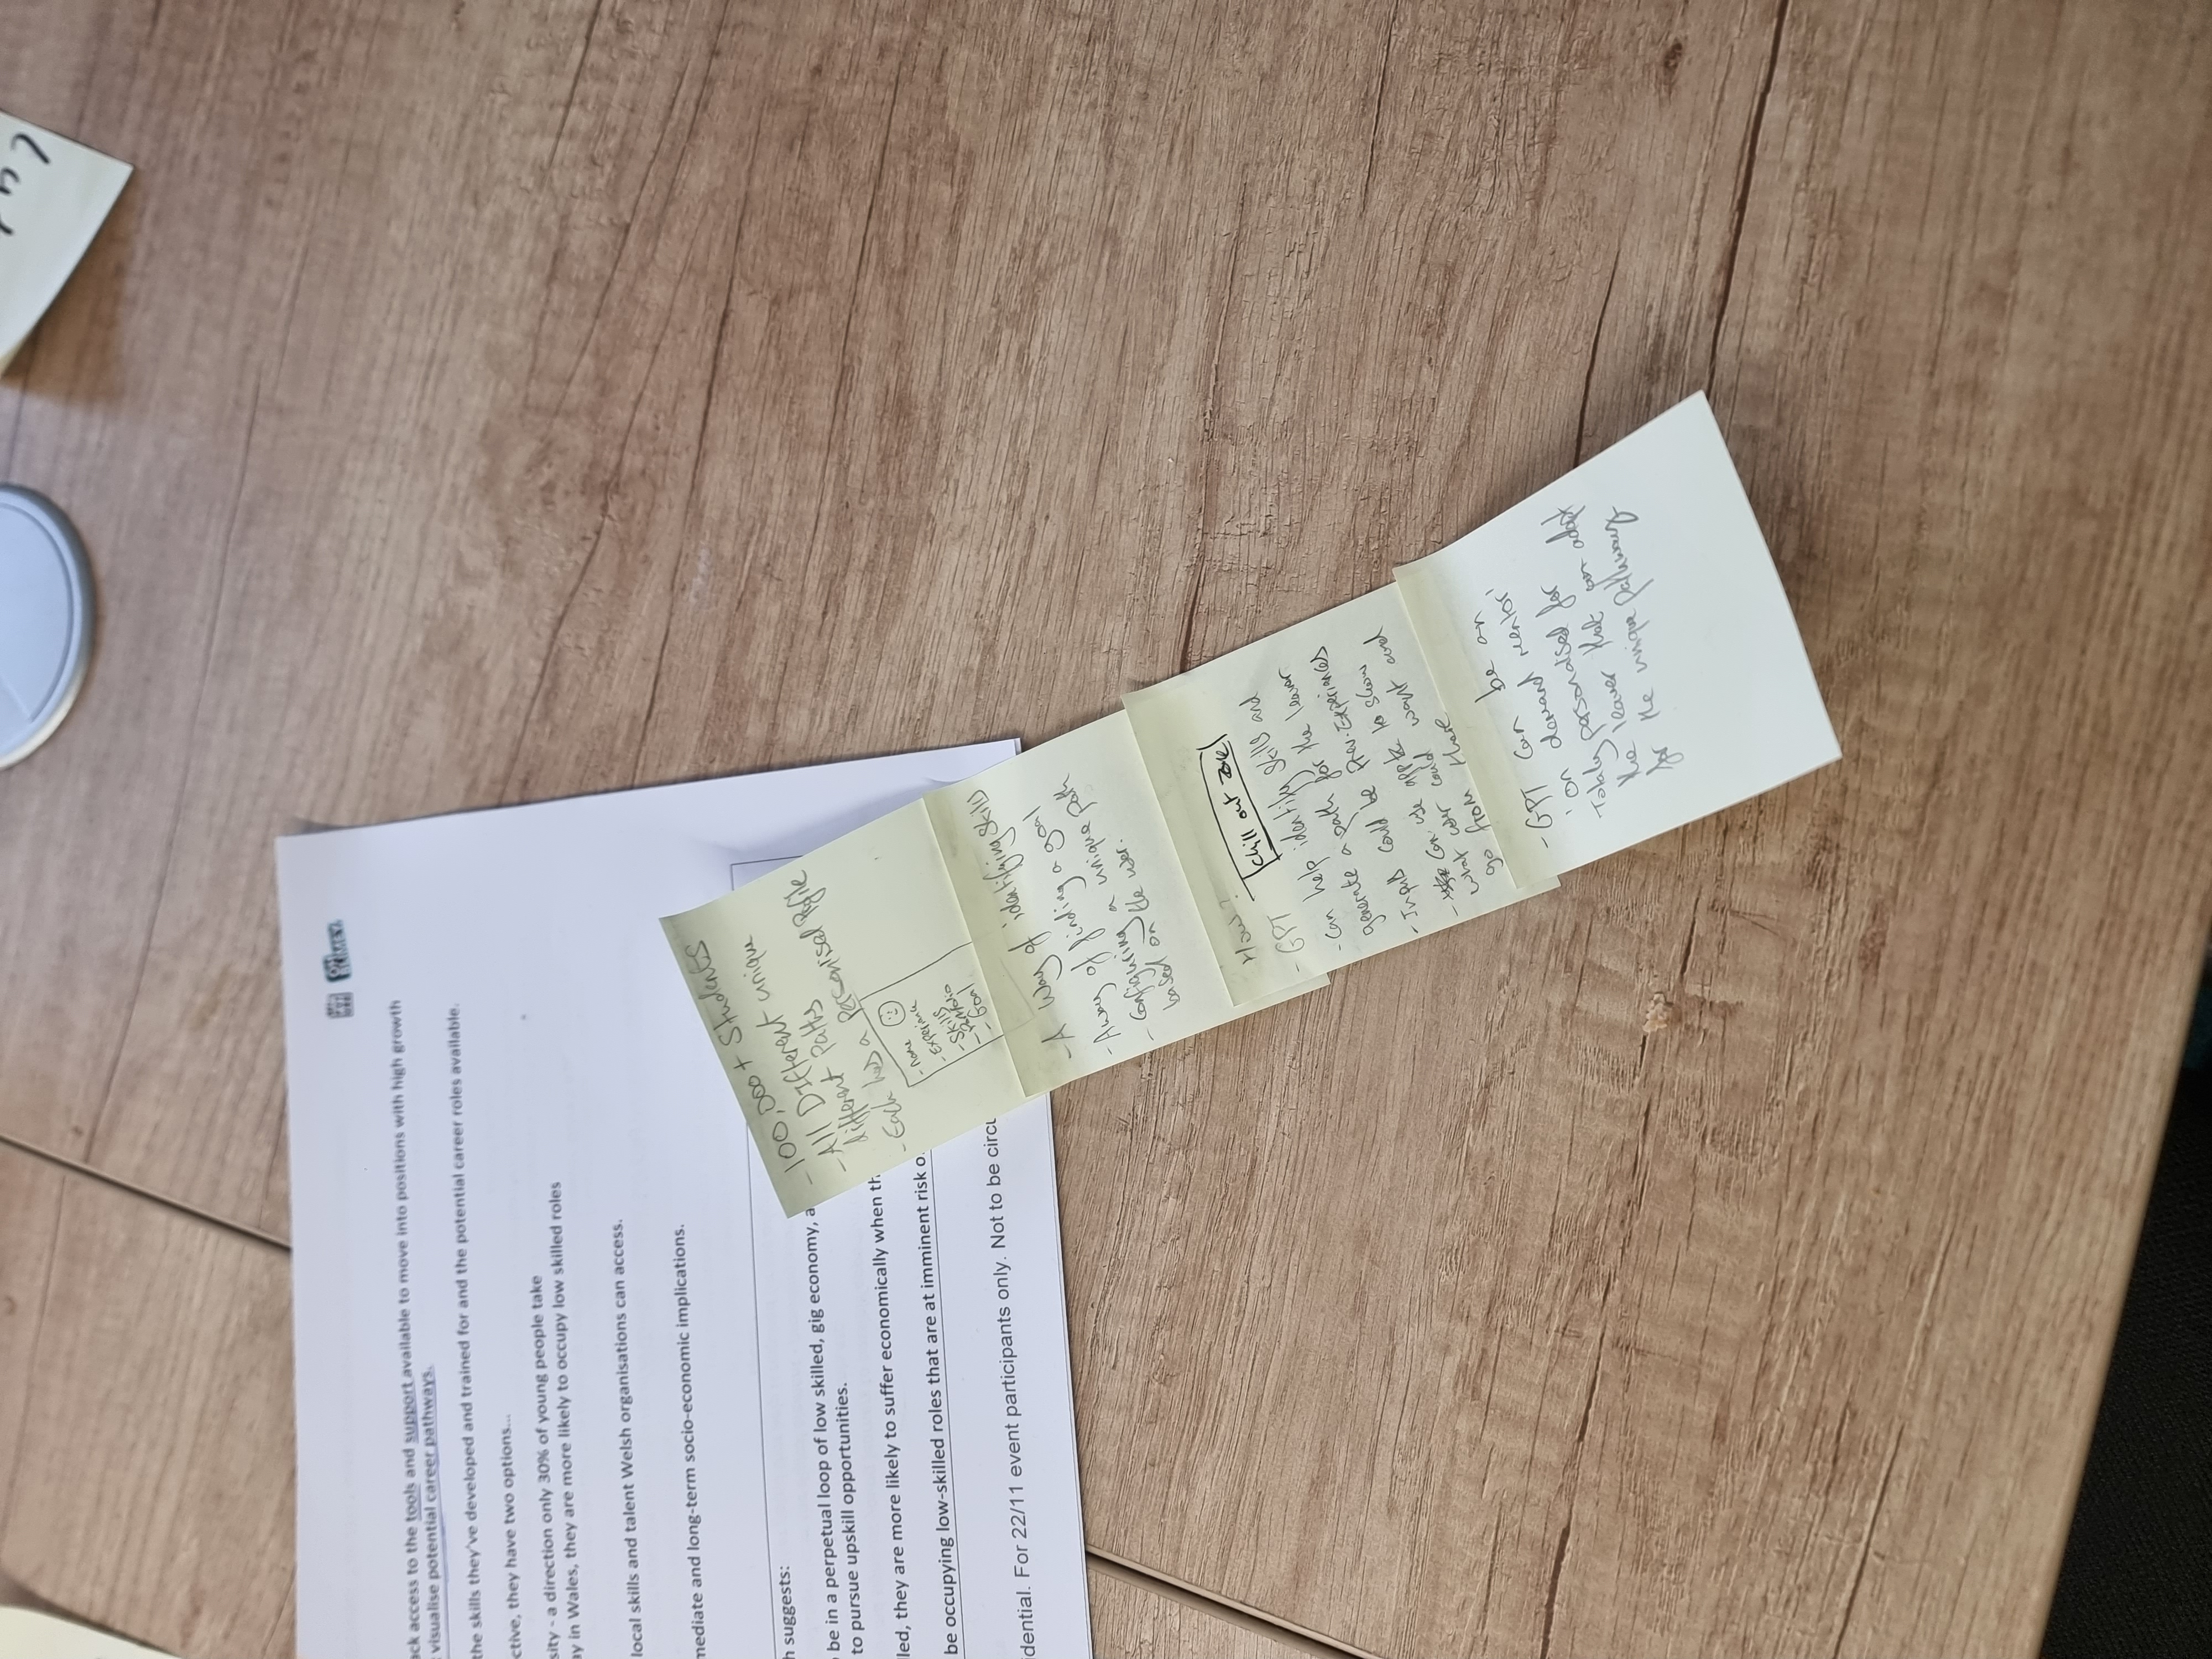 ack access to the tools and support available to move into positions with high growth
visualise potential career pathways.
the skills they've developed and trained for and the potential career roles available.
ctive, they have two options...
sity - a direction only 30% of young people take
ay in Wales, they are more likely to occupy low skilled roles
local skills and talent Welsh organisations can access.
mediate and long-term socio-economic implications.
h suggests:
be in a perpetual loop of low skilled, gig economy, a
to pursue upskill opportunities.
lled, they are more likely to suffer economically when th
be occupying low-skilled roles that are at imminent risk o
idential. For 22/11 event participants only. Not to be circu
- 100,000+ Students
- All Different unique
different Paths
- Each has a Personised Profile
- name
- Experience
- Skills
- Portfolio
- Goal
- A Way of identifying Skills
- A way of finding a goal
- Configuring a unique path
based on the user.
How?
chill out zone
- GPT
- Can help identify skills and
generate a path for the leaver
- Inputs could be Prev. Experiances
- Can use to show
what user could want and
go from there
- GPT can be an
'on demand mentor'
Totaly personalised for
the leaver that can adapt
for the unique pathway